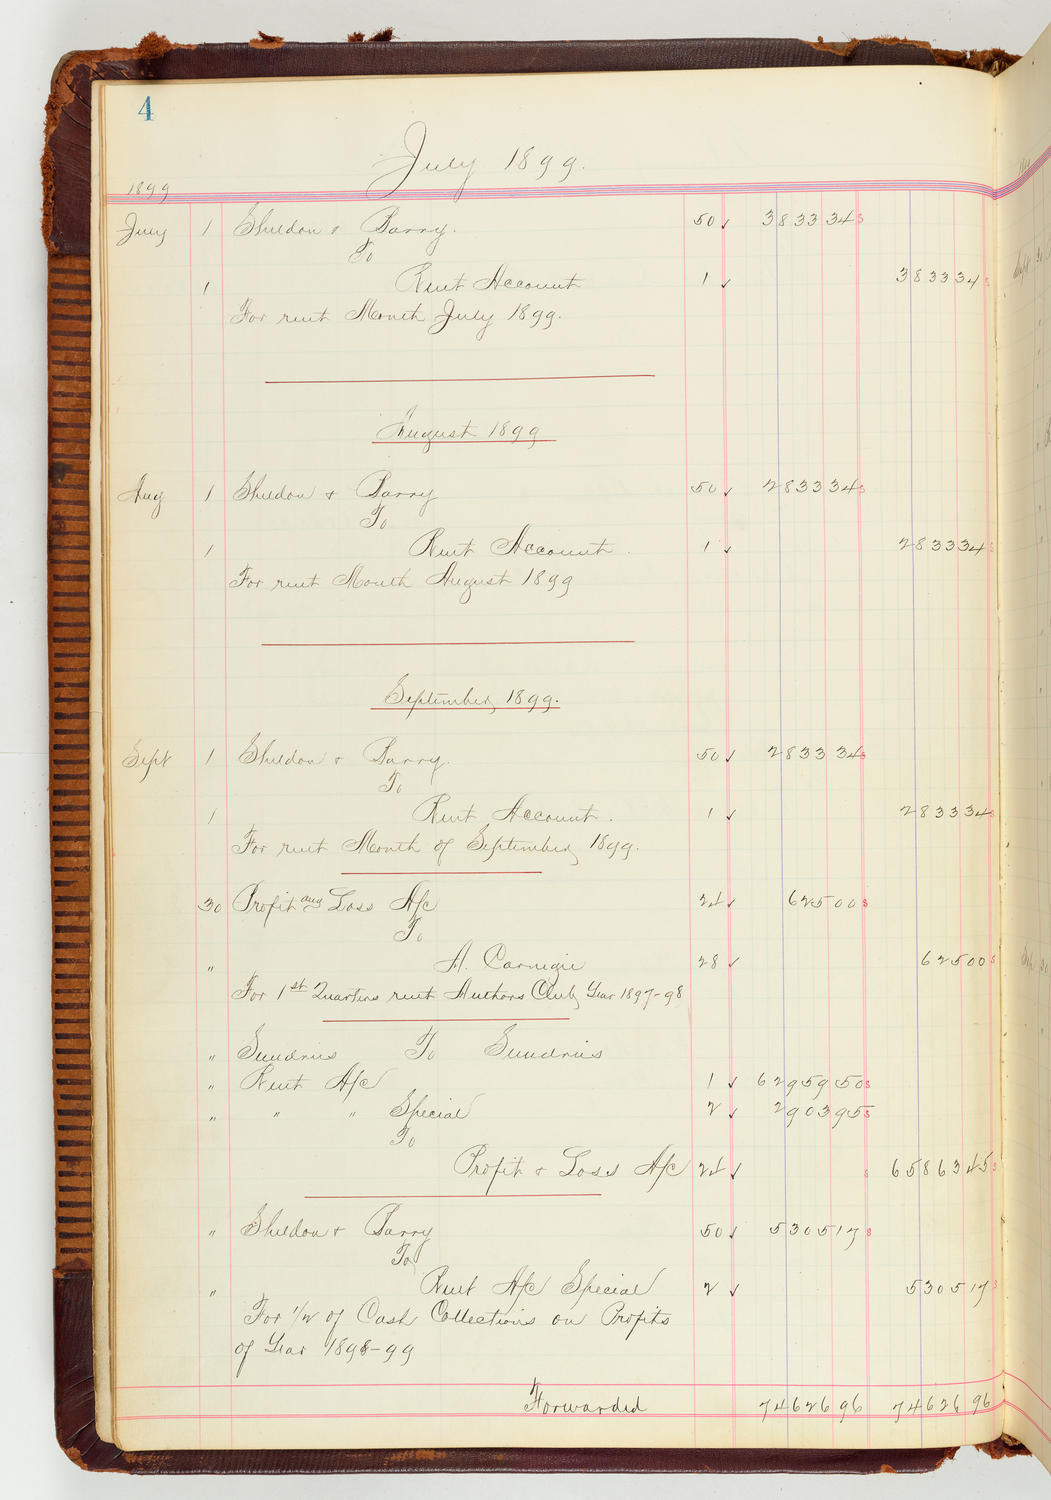 4
July 1899.
1899
July 1 Sheldon & Barry. 50 ✓ 3833 34
To
1 Rent Account 1 ✓ 3833 34
For rent Month July 1899.
August 1899
Aug 1 Sheldon & Barry 50 ✓ 2833 34
To
1 Rent Account. 1 ✓ 2833 34
For rent Month August 1899
September 1899.
Sept 1 Sheldon & Barry. 50 ✓ 2833 34
To
1 Rent Account. 1 ✓ 2833 34
For rent Month of September 1899.
30 Profit and Loss A/c 24 ✓ 625 00
To
" A. Carnegie 28 ✓ 625 00
For 1st Quarters rent Authors Club Year 1897-98
" Sundries To Sundries
" Rent A/c 1 ✓ 62959 50
" " " Special 2 ✓ 2903 95
To
Profit & Loss A/c 24 ✓ 65863 45
" Sheldon & Barry 50 ✓ 5305 17
To
" Rent A/c Special 2 ✓ 5305 17
For 1/2 of Cash Collections on Profits
of Year 1898-99
Forwarded 74626 96 74626 96